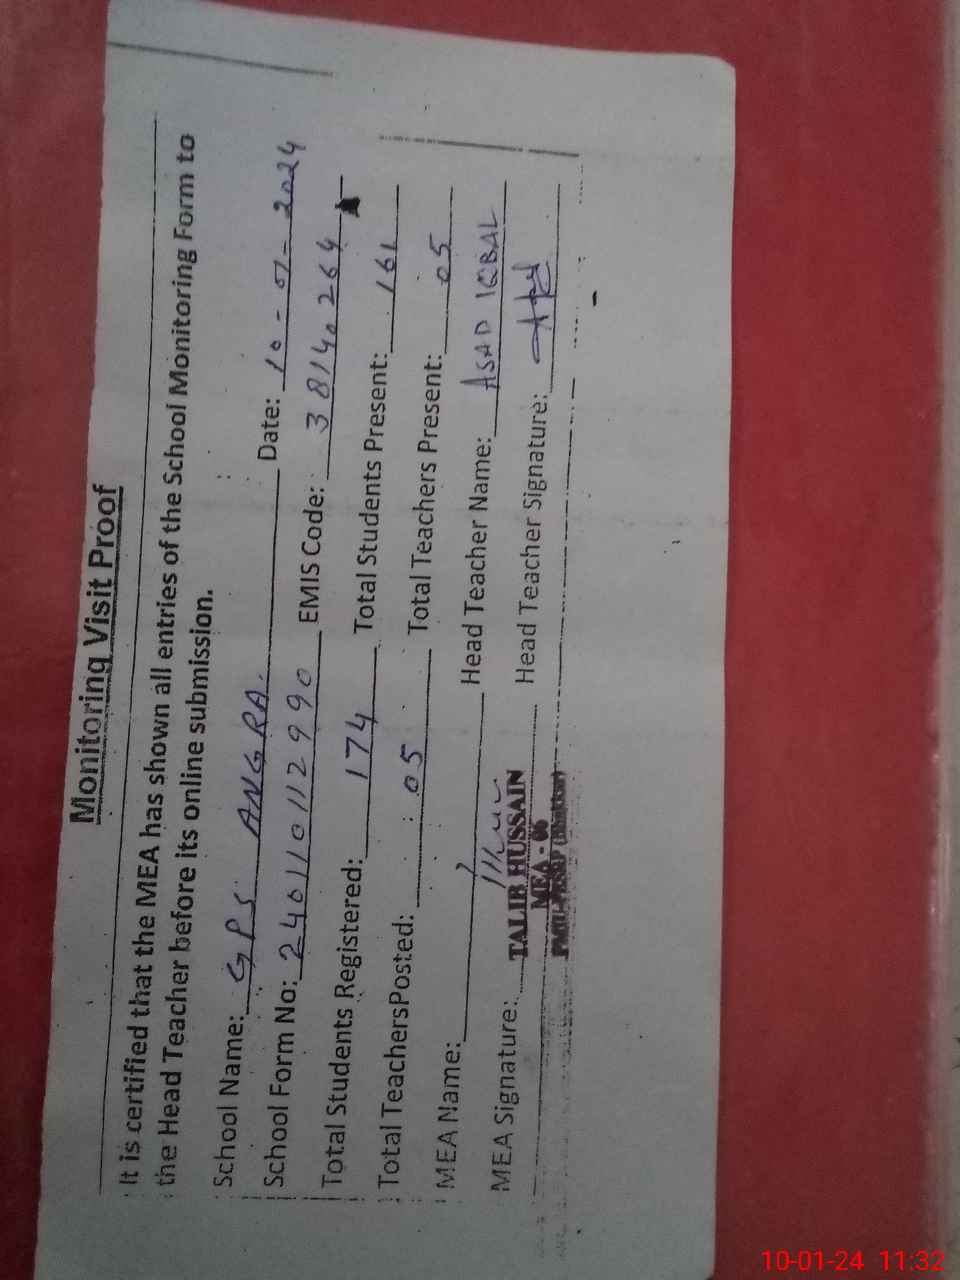 Monitoring Visit Proof
It is certified that the MEA has shown all entries of the School Monitoring Form to
the Head Teacher before its online submission.
School Name: GPS ANGRA. Date: 10-01-2024
School Form No: 240110112990 EMIS Code: 38140264
Total Students Registered: 174 Total Students Present: 161
Total TeachersPosted: 05 Total Teachers Present: 05
MEA Name: Head Teacher Name: ASAD IQBAL
MEA Signature: Head Teacher Signature:
TALIB HUSSAIN
MEA - 06
10-01-24 11:32